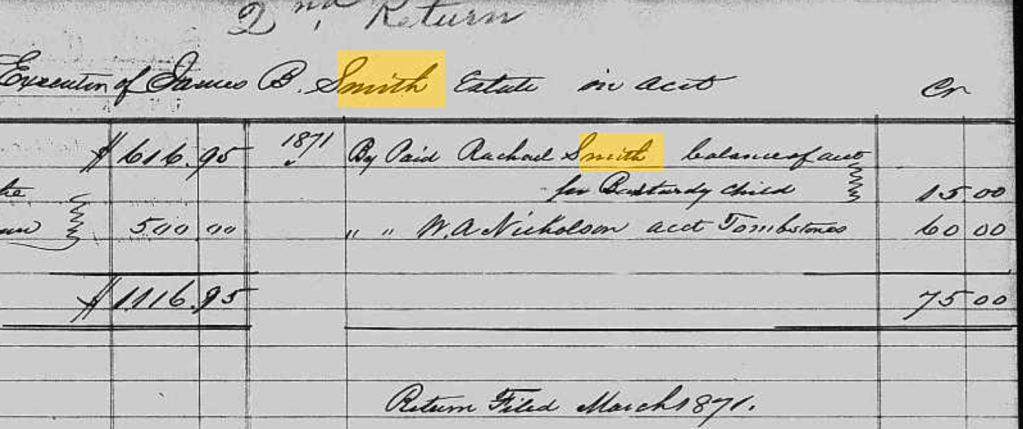 2nd, Return
Executor of James B. Smith Estate in acct Cr
$616.95 1871 By Paid Rachael Smith balance of acct
the for Basturdy Child 15 00
500.00 " " W. A. Nicholson acct Tombstones 60 00
$1116.95 75 00
Return Filed March 1871.